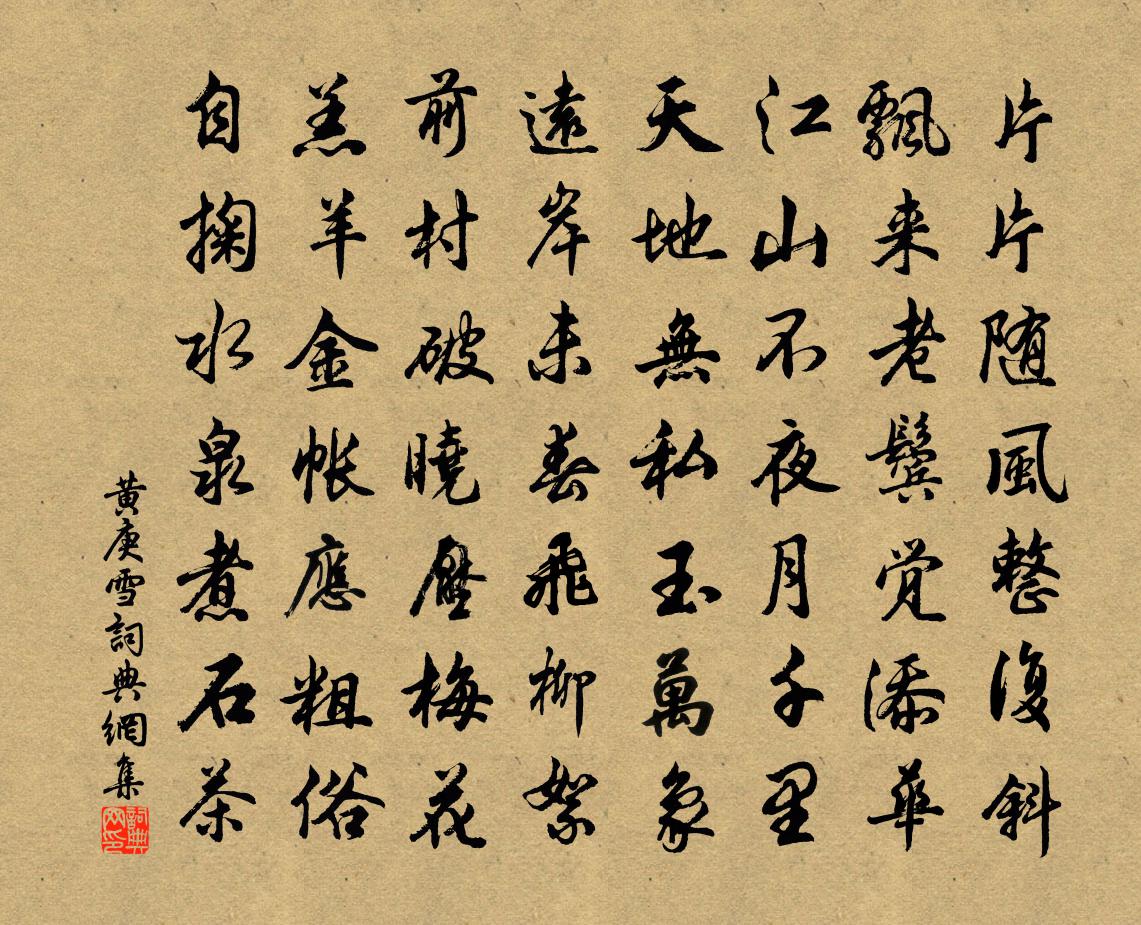 片片随風整復斜
飄来老鬓覚添華
江山不夜月千里
天地無私玉萬象
遠岸未春飛柳絮
前村破曉壓梅花
羔羊金帐應粗俗
自掬水泉煮石茶
黃庚雪詞典網集
詞典网印